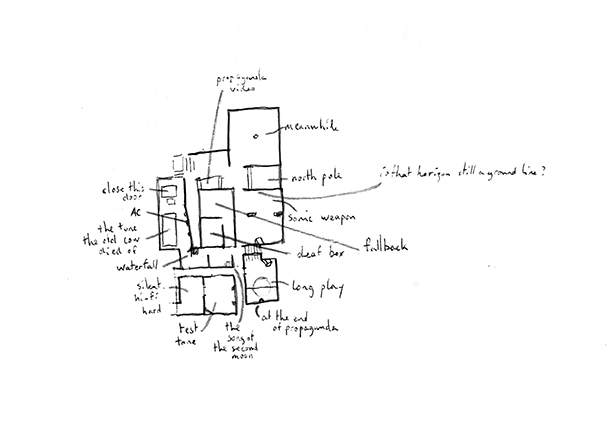 propaganda
video
meanwhile
north pole
is that horizon still a ground line?
close this
door
AC
sonic weapon
the tune
the old cow
died of
fallback
deaf box
waterfall
silent
hi-fi
hard
long play
test
tone
the
song of
the second
moon
at the end
of propaganda